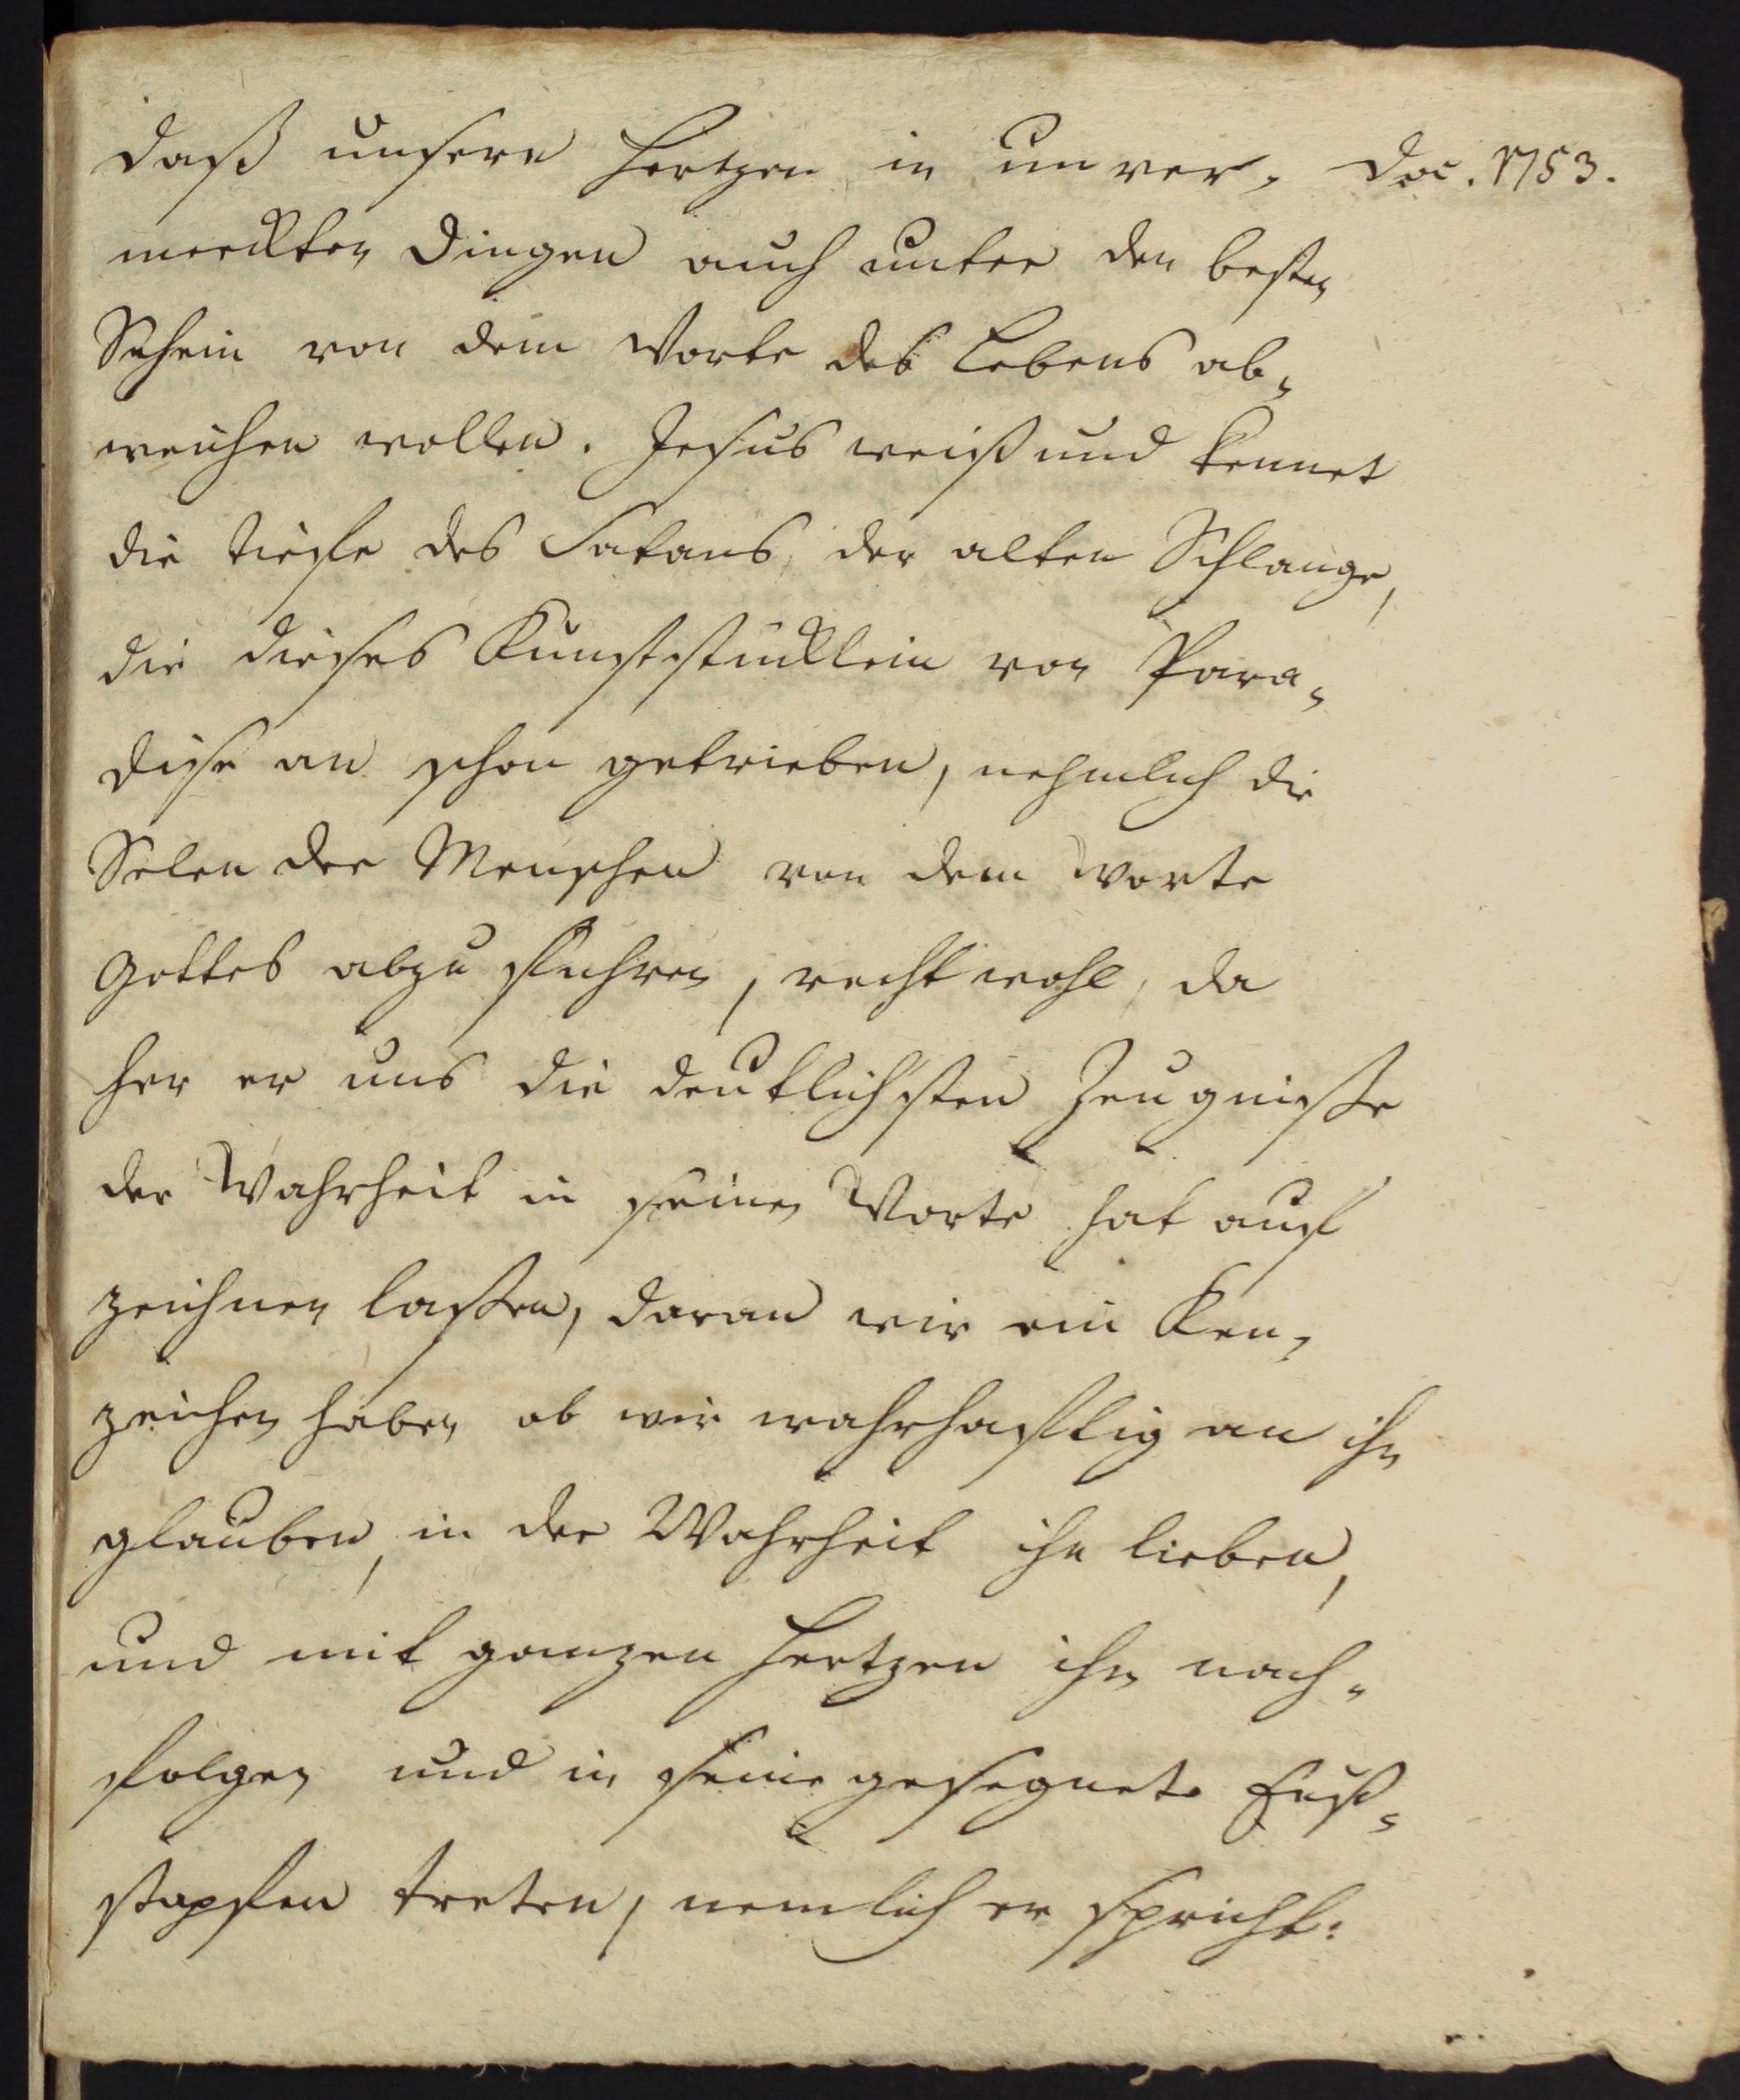 daß unsere Hertzen in unver- Doc. 1753.
merckten Dingen auch unter den besten
Schein von dem Worte des Lebens ab-
weichen wollen. Jesus weiß und kennet
die tiefe des Satans, der alten Schlange,
die dieses Kunststücklein von Para-
diese an schon getrieben, nehmlich die
Selen der Menschen von dem Worte
Gottes abzu führen, recht wohl, da
her er uns die deutlichsten Zeugniße
der Wahrheit in seinen Worte hat auf
zeichnen laßen, daran wir ein Ken-
zeichen haben ob wir wahrhafftig an ihn
glauben, in der Wahrheit ihn lieben,
und mit ganzen Hertzen ihn nach-
folgen und in seine gesegnete Fuß-
stapfen treten, nemlich er spricht: